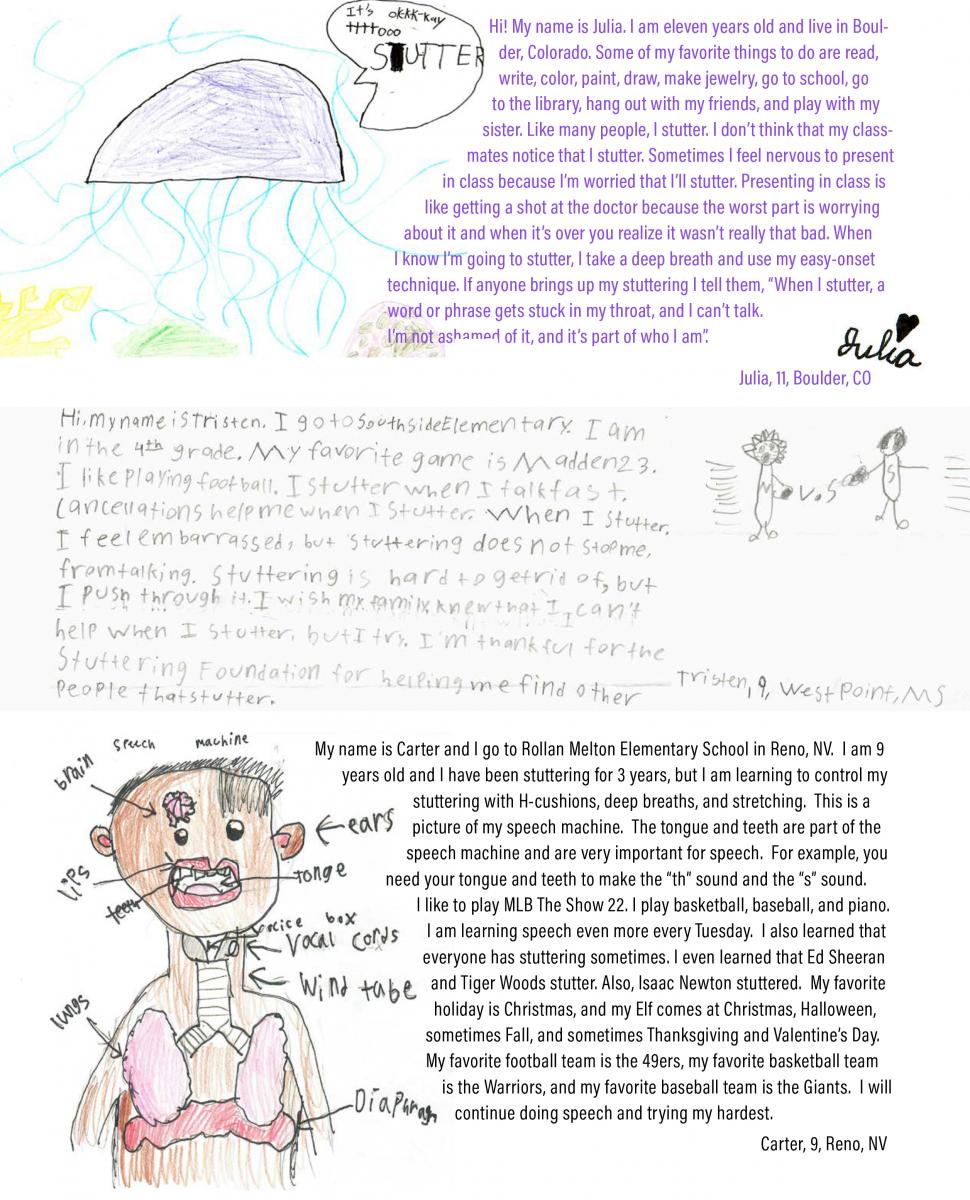 It's okkk-kay
ttttooo
STUTTER
Hi! My name is Julia. I am eleven years old and live in Boul-
der, Colorado. Some of my favorite things to do are read,
write, color, paint, draw, make jewelry, go to school, go
to the library, hang out with my friends, and play with my
sister. Like many people, I stutter. I don't think that my class-
mates notice that I stutter. Sometimes I feel nervous to present
in class because I'm worried that I'll stutter. Presenting in class is
like getting a shot at the doctor because the worst part is worrying
about it and when it's over you realize it wasn't really that bad. When
I know I'm going to stutter, I take a deep breath and use my easy-onset
technique. If anyone brings up my stuttering I tell them, “When I stutter, a
word or phrase gets stuck in my throat, and I can't talk.
I'm not ashamed of it, and it's part of who I am”.
Julia
Julia, 11, Boulder, CO
Hi, my name is Tristen. I go to Southside Elementary. I am
in the 4th grade. My favorite game is Madden 23.
I like playing football. I stutter when I talk fast.
Cancellations help me when I stutter. When I stutter,
I feel embarrassed, but stuttering does not stop me,
from talking. Stuttering is hard to get rid of, but
I push through it. I wish my family knew that I can't
help when I stutter, but I try. I'm thankful for the
Stuttering Foundation for helping me find other
people that stutter.
M V.S S
Tristen, 9, West Point, MS
speech machine
brain
ears
lips
tonge
teeth
voice box
Vocal cords
Wind tube
lungs
Diaphragh
My name is Carter and I go to Rollan Melton Elementary School in Reno, NV. I am 9
years old and I have been stuttering for 3 years, but I am learning to control my
stuttering with H-cushions, deep breaths, and stretching. This is a
picture of my speech machine. The tongue and teeth are part of the
speech machine and are very important for speech. For example, you
need your tongue and teeth to make the “th” sound and the “s” sound.
I like to play MLB The Show 22. I play basketball, baseball, and piano.
I am learning speech even more every Tuesday. I also learned that
everyone has stuttering sometimes. I even learned that Ed Sheeran
and Tiger Woods stutter. Also, Isaac Newton stuttered. My favorite
holiday is Christmas, and my Elf comes at Christmas, Halloween,
sometimes Fall, and sometimes Thanksgiving and Valentine's Day.
My favorite football team is the 49ers, my favorite basketball team
is the Warriors, and my favorite baseball team is the Giants. I will
continue doing speech and trying my hardest.
Carter, 9, Reno, NV